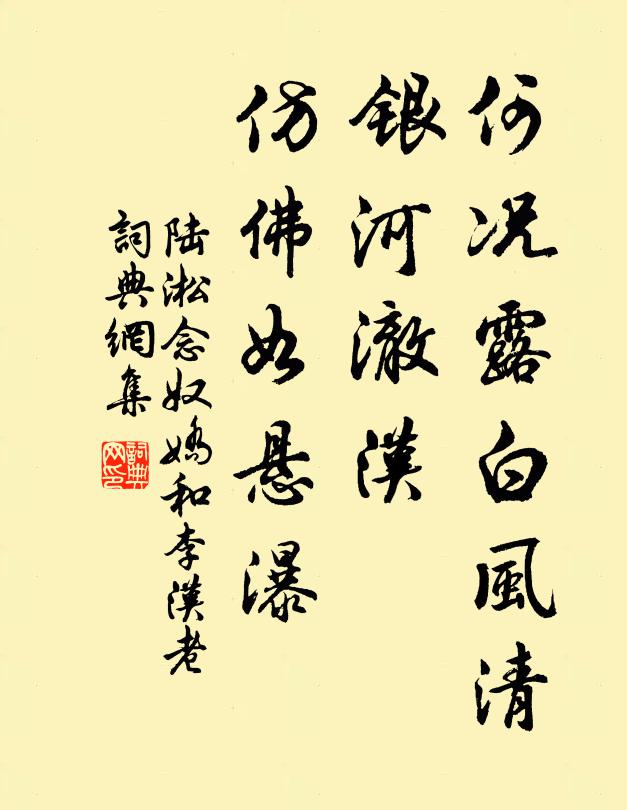 何况露白風清
銀河澈漢
仿佛如悬瀑
陆淞念奴嬌和李漢老
詞典網集
詞典网印